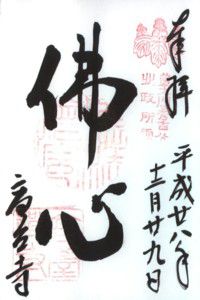 奉拝
平成廿八年
十二月廿九日
佛心
高台寺